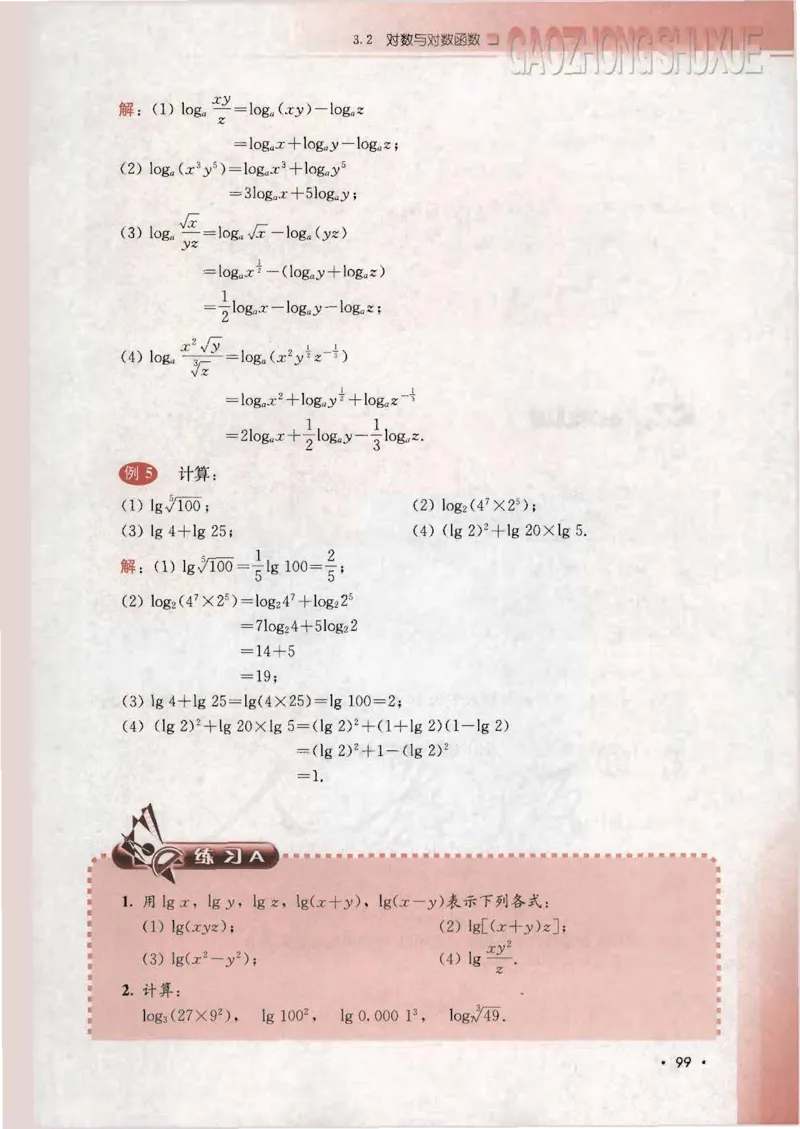 3.2 对数与对数函数
GAOZHONGSHUXUE
解：(1) logₐ xy/z = logₐ(xy) − logₐz
= logₐx + logₐy − logₐz；
(2) logₐ(x³y⁵) = logₐx³ + logₐy⁵
= 3logₐx + 5logₐy；
(3) logₐ √x/yz = logₐ√x − logₐ(yz)
= logₐx^(1/2) − (logₐy + logₐz)
= 1/2 logₐx − logₐy − logₐz；
(4) logₐ x²√y/∛z = logₐ(x²y^(1/2)z^(−1/3))
= logₐx² + logₐy^(1/2) + logₐz^(−1/3)
= 2logₐx + 1/2 logₐy − 1/3 logₐz.
例 5 计算：
(1) lg ⁵√100； (2) log₂(4⁷×2⁵)；
(3) lg 4+lg 25； (4) (lg 2)²+lg 20×lg 5.
解：(1) lg ⁵√100 = 1/5 lg 100 = 2/5；
(2) log₂(4⁷×2⁵)=log₂4⁷+log₂2⁵
=7log₂4+5log₂2
=14+5
=19；
(3) lg 4+lg 25=lg(4×25)=lg 100=2；
(4) (lg 2)²+lg 20×lg 5=(lg 2)²+(1+lg 2)(1−lg 2)
=(lg 2)²+1−(lg 2)²
=1.
练习A
1. 用 lg x，lg y，lg z，lg(x+y)，lg(x−y)表示下列各式：
(1) lg(xyz)； (2) lg[(x+y)z]；
(3) lg(x²−y²)； (4) lg xy²/z.
2. 计算：
log₃(27×9²)， lg 100²， lg 0.000 1³， log₇∛49.
· 99 ·